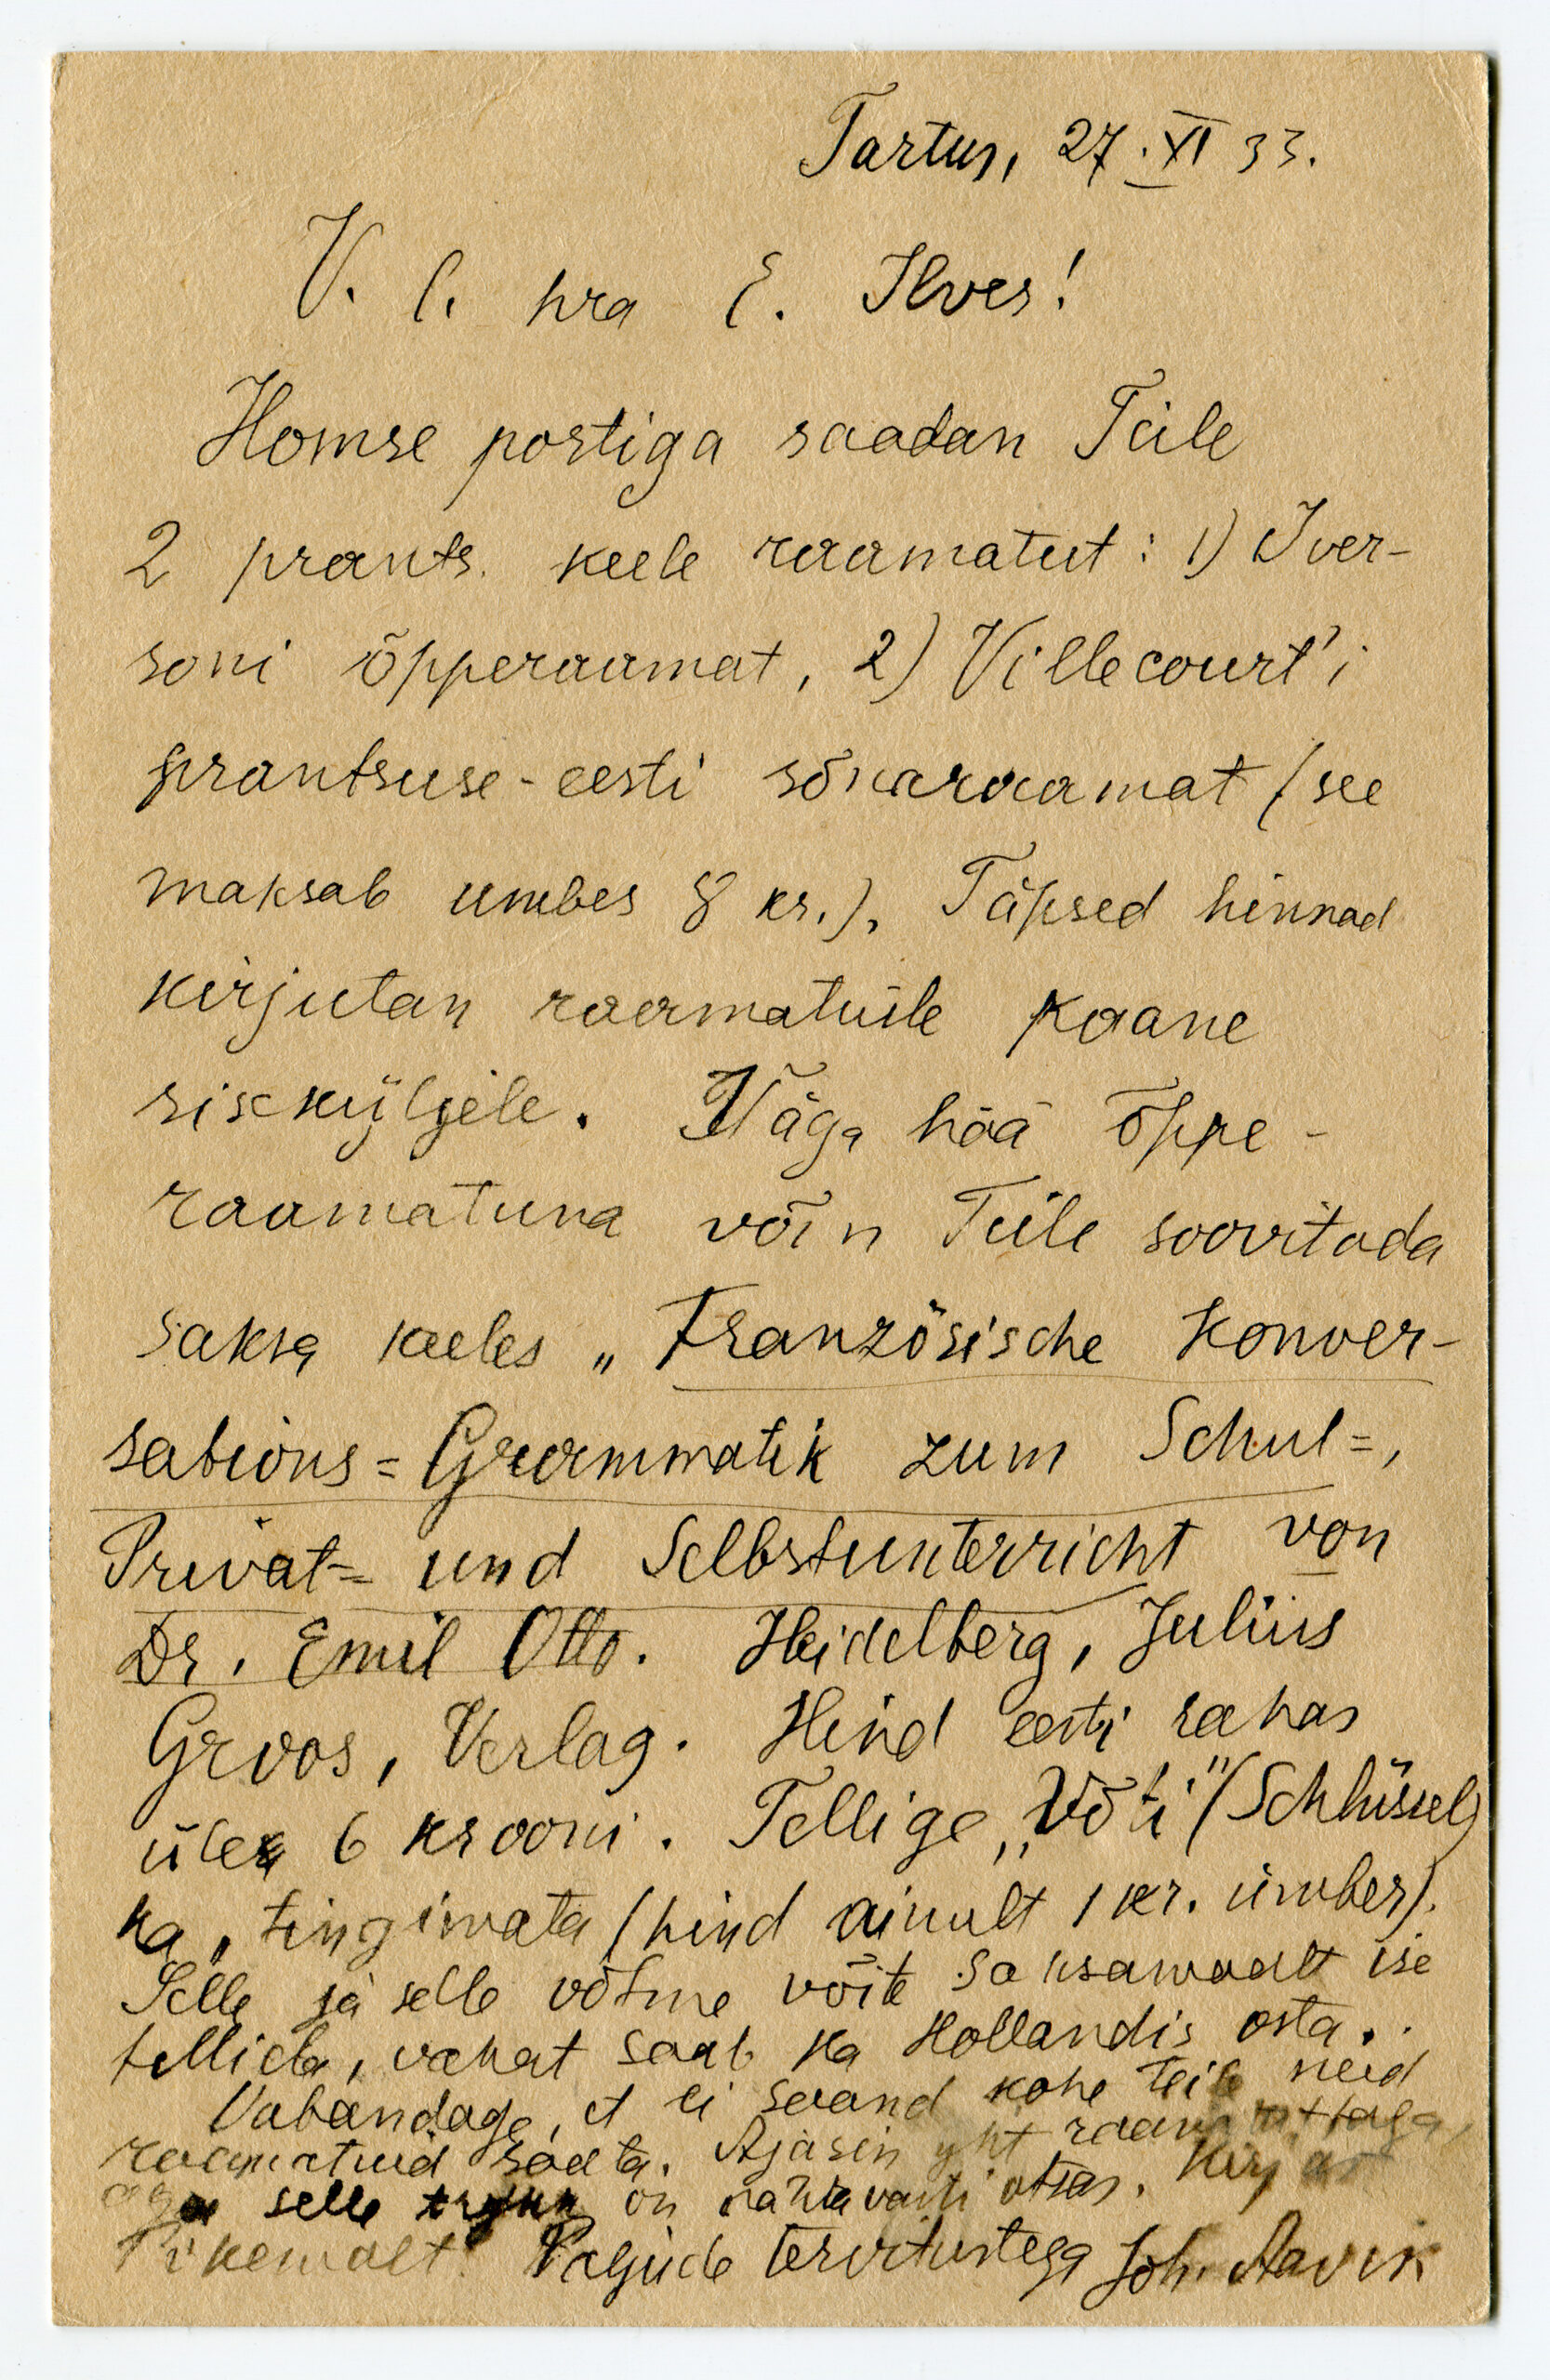 Tartus, 27. XI 33.
V. l. hra E. Ilves!
Homse postiga saadan Teile
2 prants. keele raamatut: 1) Iver-
soni õpperaamat, 2) Villecourt'i
prantsuse-eesti sõnaraamat (see
maksab umbes 8 kr.). Täpsed hinnad
kirjutan raamatuile kaane
siseküljele. Väga hää õppe-
raamatuna võin Teile soovitada
saksa keeles „Französische Konver-
sations=Grammatik zum Schul=,
Privat= und Selbstunterricht von
Dr. Emil Otto. Heidelberg, Julius
Groos, Verlag. Hind eesti rahas
üle 6 krooni. Tellige „Võti" (Schlüssel)
ka, tingimata (hind ainult 1 kr. ümber).
Selle ja selle võtme võite Saksamaalt ise
tellida, vahat saab ka Hollandis osta.
Vabandage, et ei saand kohe teile neid
raamatuid saata. Ajasin yht raamattaga,
aga selle on nähtavasti otsas. Kirjas
Pikemalt. Paljude tervitustega Joh. Aavik